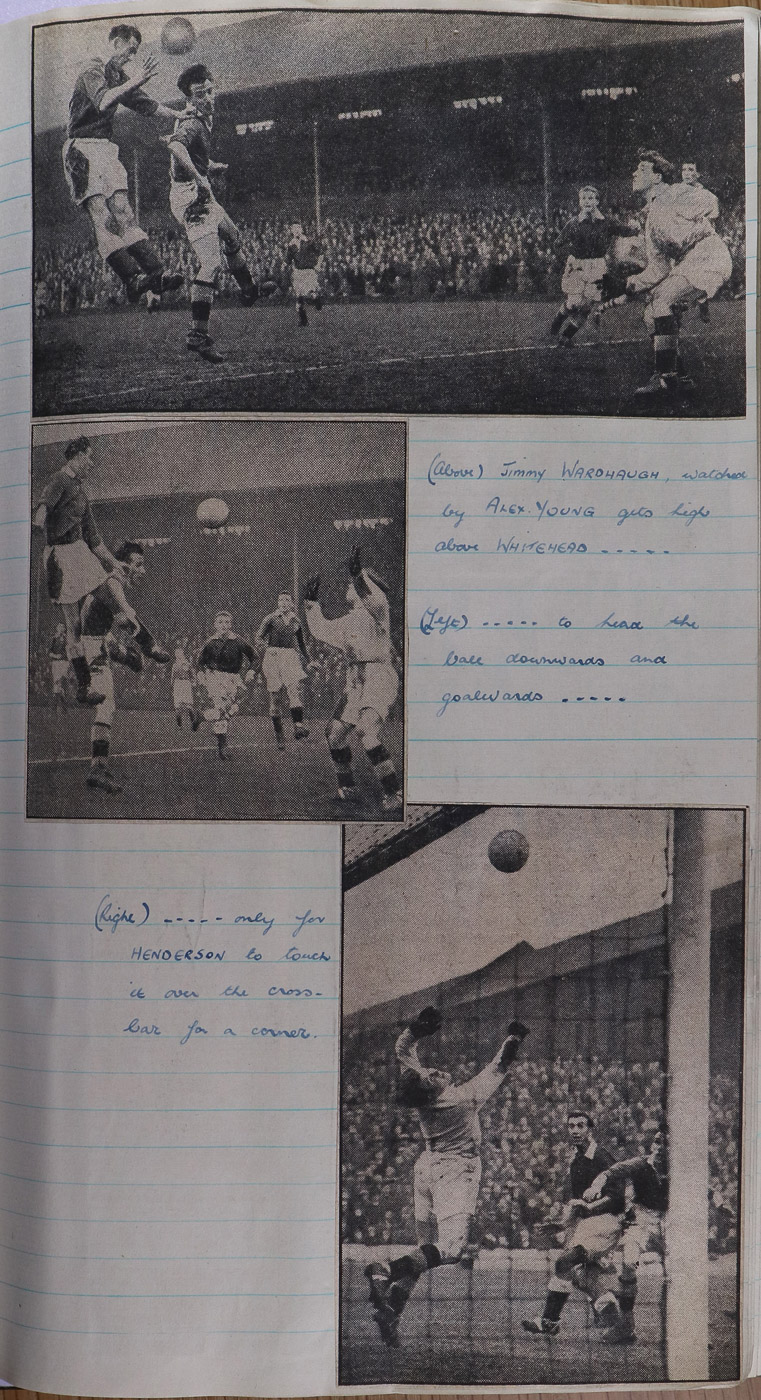 (Above) Jimmy WARDHAUGH, watched
by ALEX. YOUNG gets high
above WHITEHEAD -----
(Left) ----- to head the
ball downwards and
goalwards -----
(Right) ----- only for
HENDERSON to touch
it over the cross-
bar for a corner.